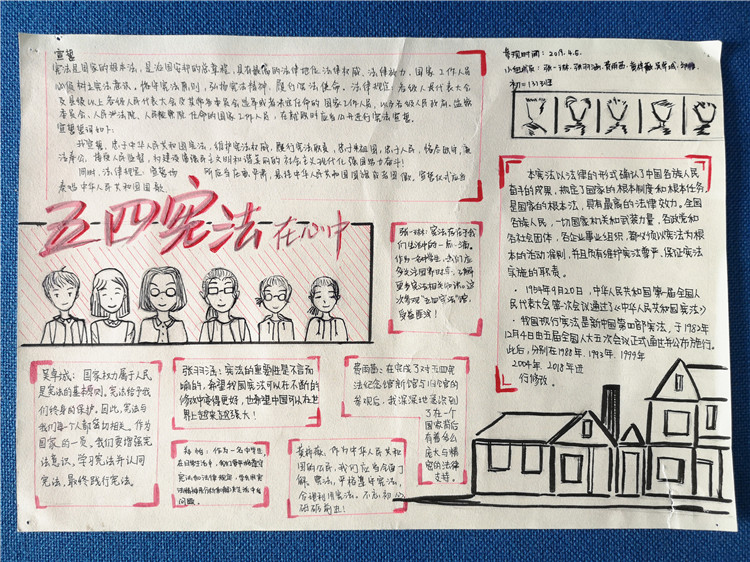 宣誓
宪法是国家的根本法,是治国安邦的总章程,具有最高的法律地位、法律权威、法律效力。国家工作人员
必须树立宪法意识,恪守宪法原则,弘扬宪法精神,履行宪法使命。法律规定:各级人民代表大会
及县级以上各级人民代表大会常务委员会选举或者决定任命的国家工作人员,以及各级人民政府、监察
委员会、人民法院、人民检察院任命的国家工作人员,在就职时应当公开进行宪法宣誓。
宣誓誓词如下:
我宣誓:忠于中华人民共和国宪法,维护宪法权威,履行法定职责,忠于祖国、忠于人民,恪尽职守、廉
洁奉公,接受人民监督,为建设富强民主文明和谐美丽的社会主义现代化强国努力奋斗!
同时,法律规定:宣誓场所应当庄重、严肃,悬挂中华人民共和国国旗或者国徽。宣誓仪式应当
奏唱中华人民共和国国歌
参观时间:2019.4.5.
初一1313班
五四宪法在心中
本宪法以法律的形式确认了中国各族人民
奋斗的成果,规定了国家的根本制度和根本任务
是国家的根本法,具有最高的法律效力。全国
各族人民,一切国家机关和武装力量、各政党和
各社会团体,各企业事业组织,都必须以宪法为根
本的活动准则,并且负有维护宪法尊严、保证宪法
实施的职责。
·1954年9月20日,中华人民共和国第一届全国人
民代表大会第一次会议通过了《中华人民共和国宪法》
·我国现行宪法是新中国第四部宪法,于1982年
12月4日由五届全国人大五次会议正式通过并公布施行。
此后,分别在1988年、1993年、1999年
2004年、2018年进
行修改。
们生活中的一点一滴。
作为一名中学生,我们应
多关注国家时事,了解
更多宪法相关知识。这
次参观"五四宪法"馆,
受益匪浅!
吴卓斌:国家权力属于人民
是宪法的基本原则,宪法给予我
们终身的保护。因此,宪法与
我们每个人都密切相关。作为
国家的一员。我们要增强宪
法意识,学习宪法并认同
宪法,最终践行宪法。
张羽涵:宪法的重要性是不言而
喻的,希望我国宪法可以在不断的
修改中变得更好,也希望中国可以在世
界上越来越强大!
作为一名中学生,
在日常生活中,我们要牢牢遵守
问题。
费雨茜:在完成了对五四宪
法纪念馆新馆与旧馆的
参观后,我深深地意识到
了在一个
国家背后
有着多么
庞大与精
密的法律
支持。
作为中华人民共和
国的公民,我们应当全面了
解宪法,严格遵守宪法,
合理利用宪法。不忘初心
砥砺前进!